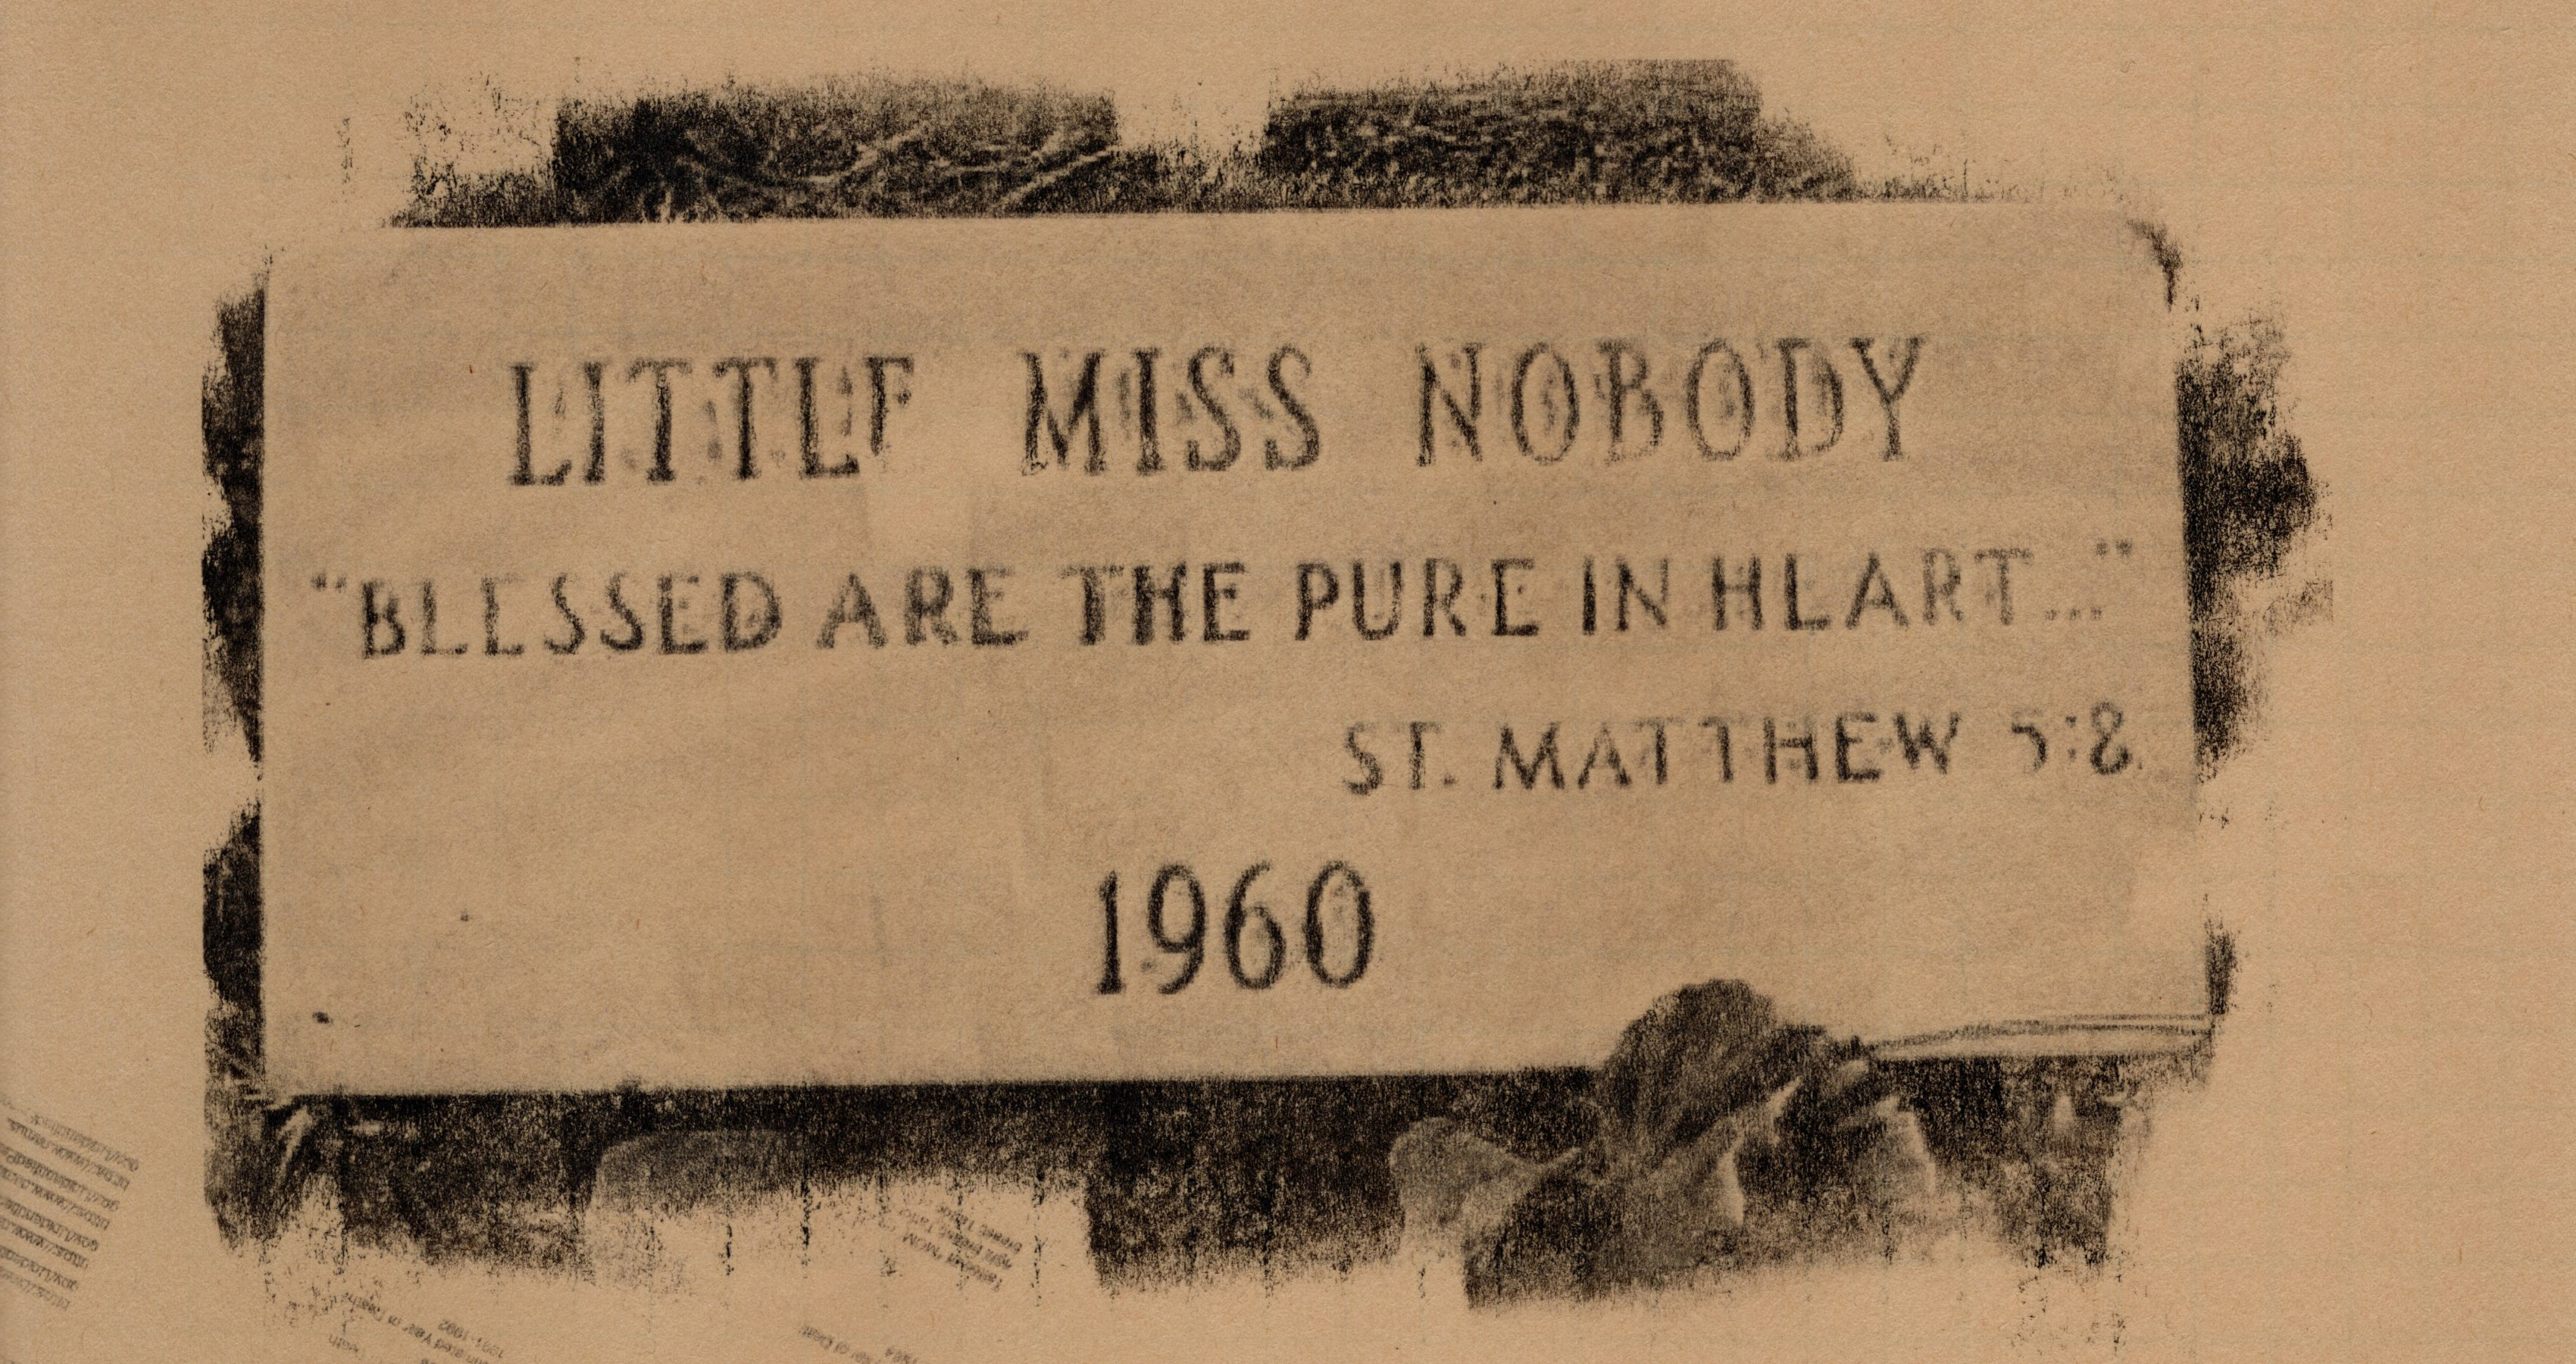 LITTLE MISS NOBODY
"BLESSED ARE THE PURE IN HEART..."
ST. MATTHEW 5:8
1960